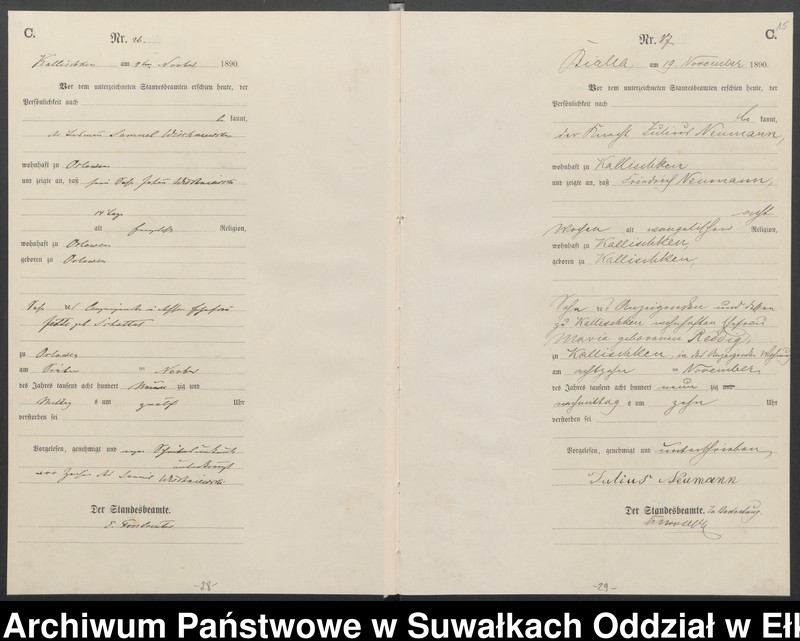 C.
Nr. 26.
Kallischken am November 1890.
Vor dem unterzeichneten Standesbeamten erschien heute, der
Persönlichkeit nach
be kannt,
Samuel Wischniewski
wohnhaft zu Orlowen
und zeigte an, daß sein Sohn Johann Wischniewski
14 Tage
alt Religion,
wohnhaft zu Orlowen
geboren zu Orlowen
Sohn des Anzeigenden u. dessen Ehefrau
geb.
zu Orlowen
am November
des Jahres tausend acht hundert neun zig und
Mittag s um zwölf Uhr
verstorben sei
Vorgelesen, genehmigt und wegen Schreibensunkunde
Samuel Wischniewski
Der Standesbeamte.
-28-
15
C.
Nr. 27
Bialla, am 19 November 1890.
Vor dem unterzeichneten Standesbeamten erschien heute, der
Persönlichkeit nach
be kannt,
der Knecht Julius Neumann,
wohnhaft zu Kallischken
und zeigte an, daß Friedrich Neumann,
acht
Wochen alt evangelischer Religion,
wohnhaft zu Kallischken,
geboren zu Kallischken,
Sohn des Anzeigenden und dessen
zu Kallischken wohnhaften Ehefrau
Maria geborenen Reddig,
zu Kallischken, in des Anzeigenden Wohnung
am achtzehn November,
des Jahres tausend acht hundert neun zig und
nachmittag s um zehn Uhr
verstorben sei
Vorgelesen, genehmigt und unterschrieben
Julius Neumann
Der Standesbeamte. In Vertretung
-29-
Archiwum Państwowe w Suwałkach Oddział w Eł